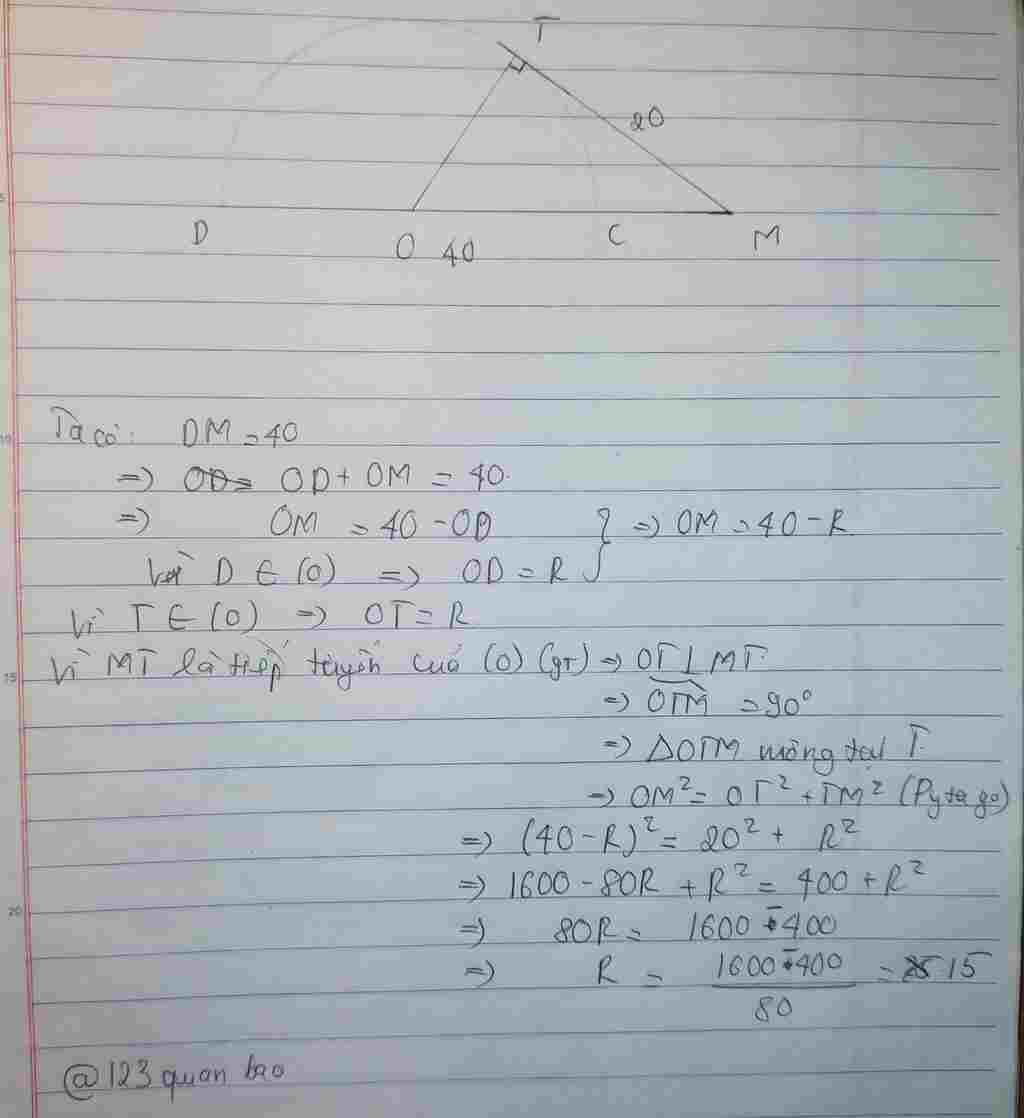 T
20
D
O 40
C
M
Ta có: DM = 40
=> OD= OD + OM = 40.
=> OM = 40 - OD } => OM = 40 - R
Với D ∈ (O) => OD = R
Vì T ∈ (O) => OT = R
Vì MT là tiếp tuyến cuả (O) (gt) => OT ⊥ MT.
=> OTM = 90°
=> ΔOTM tại T.
=> OM² = OT² + TM² (Pytago)
=> (40 - R)² = 20² + R²
=> 1600 - 80R + R² = 400 + R²
=> 80R = 1600 - 400
=> R = 1600 - 400 / 80 = 15
@123quanbao
5
10
15
20